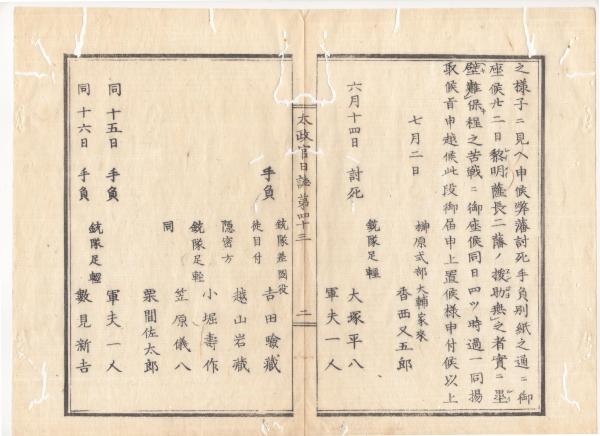 之様子ニ見ヘ申候弊藩討死手負別紙之通ニ御
座候廿二日黎明薩長二藩ノ援助無之者實ニ墨
壁難保程之苦戦ニ御座候同日四ツ時過一同揚
取候旨申越候此段御届申上置候様申付候以上
七月二日
榊原式部大輔家来
香西又五郎
六月十四日 討死
銃隊足軽
大塚平八
軍夫一人
太政官日誌第四十三
二
手負
銃隊差圖役
吉田驗蔵
徒目付
越山岩蔵
隠密方
小堀壽作
銃隊足軽
笠原儀八
同
栗間佐太郎
同十五日 手負
軍夫一人
同十六日 手負
銃隊足軽
數見新吉